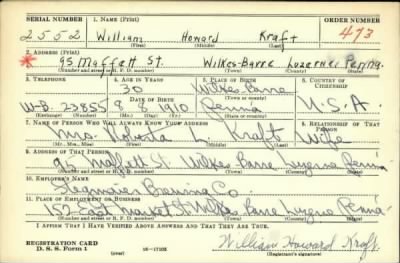 SERIAL NUMBER 1. NAME (Print) ORDER NUMBER
2552 William Howard Kraft 473
(First) (Middle) (Last)
2. ADDRESS (Print)
* 95 Moffett St. Wilkes-Barre Luzerne Penna.
(Number and street or R. F. D. number) (Town) (County) (State)
3. TELEPHONE 4. AGE IN YEARS 5. PLACE OF BIRTH 6. COUNTRY OF CITIZENSHIP
30 Wilkes-Barre
DATE OF BIRTH (Town or county)
W-B. 23855 8 1910 Penna U.S.A.
(Exchange) (Number) (Mo.) (Day) (Yr.) (State or country)
7. NAME OF PERSON WHO WILL ALWAYS KNOW YOUR ADDRESS 8. RELATIONSHIP OF THAT PERSON
Mrs. Roberta L. Kraft Wife
(Mr., Mrs., Miss) (First) (Middle) (Last)
9. ADDRESS OF THAT PERSON
95 Moffett St Wilkes Barre Luzerne Penna
(Number and street or R. F. D. number) (Town) (County) (State)
10. EMPLOYER'S NAME
Stegmaier Brewing Co.
11. PLACE OF EMPLOYMENT OR BUSINESS
152 East Market St Wilkes Barre Luzerne Penna
(Number and street or R. F. D. number) (Town) (County) (State)
I AFFIRM THAT I HAVE VERIFIED ABOVE ANSWERS AND THAT THEY ARE TRUE.
REGISTRATION CARD
D. S. S. Form 1 16-17105 William Howard Kraft
(Registrant's signature)